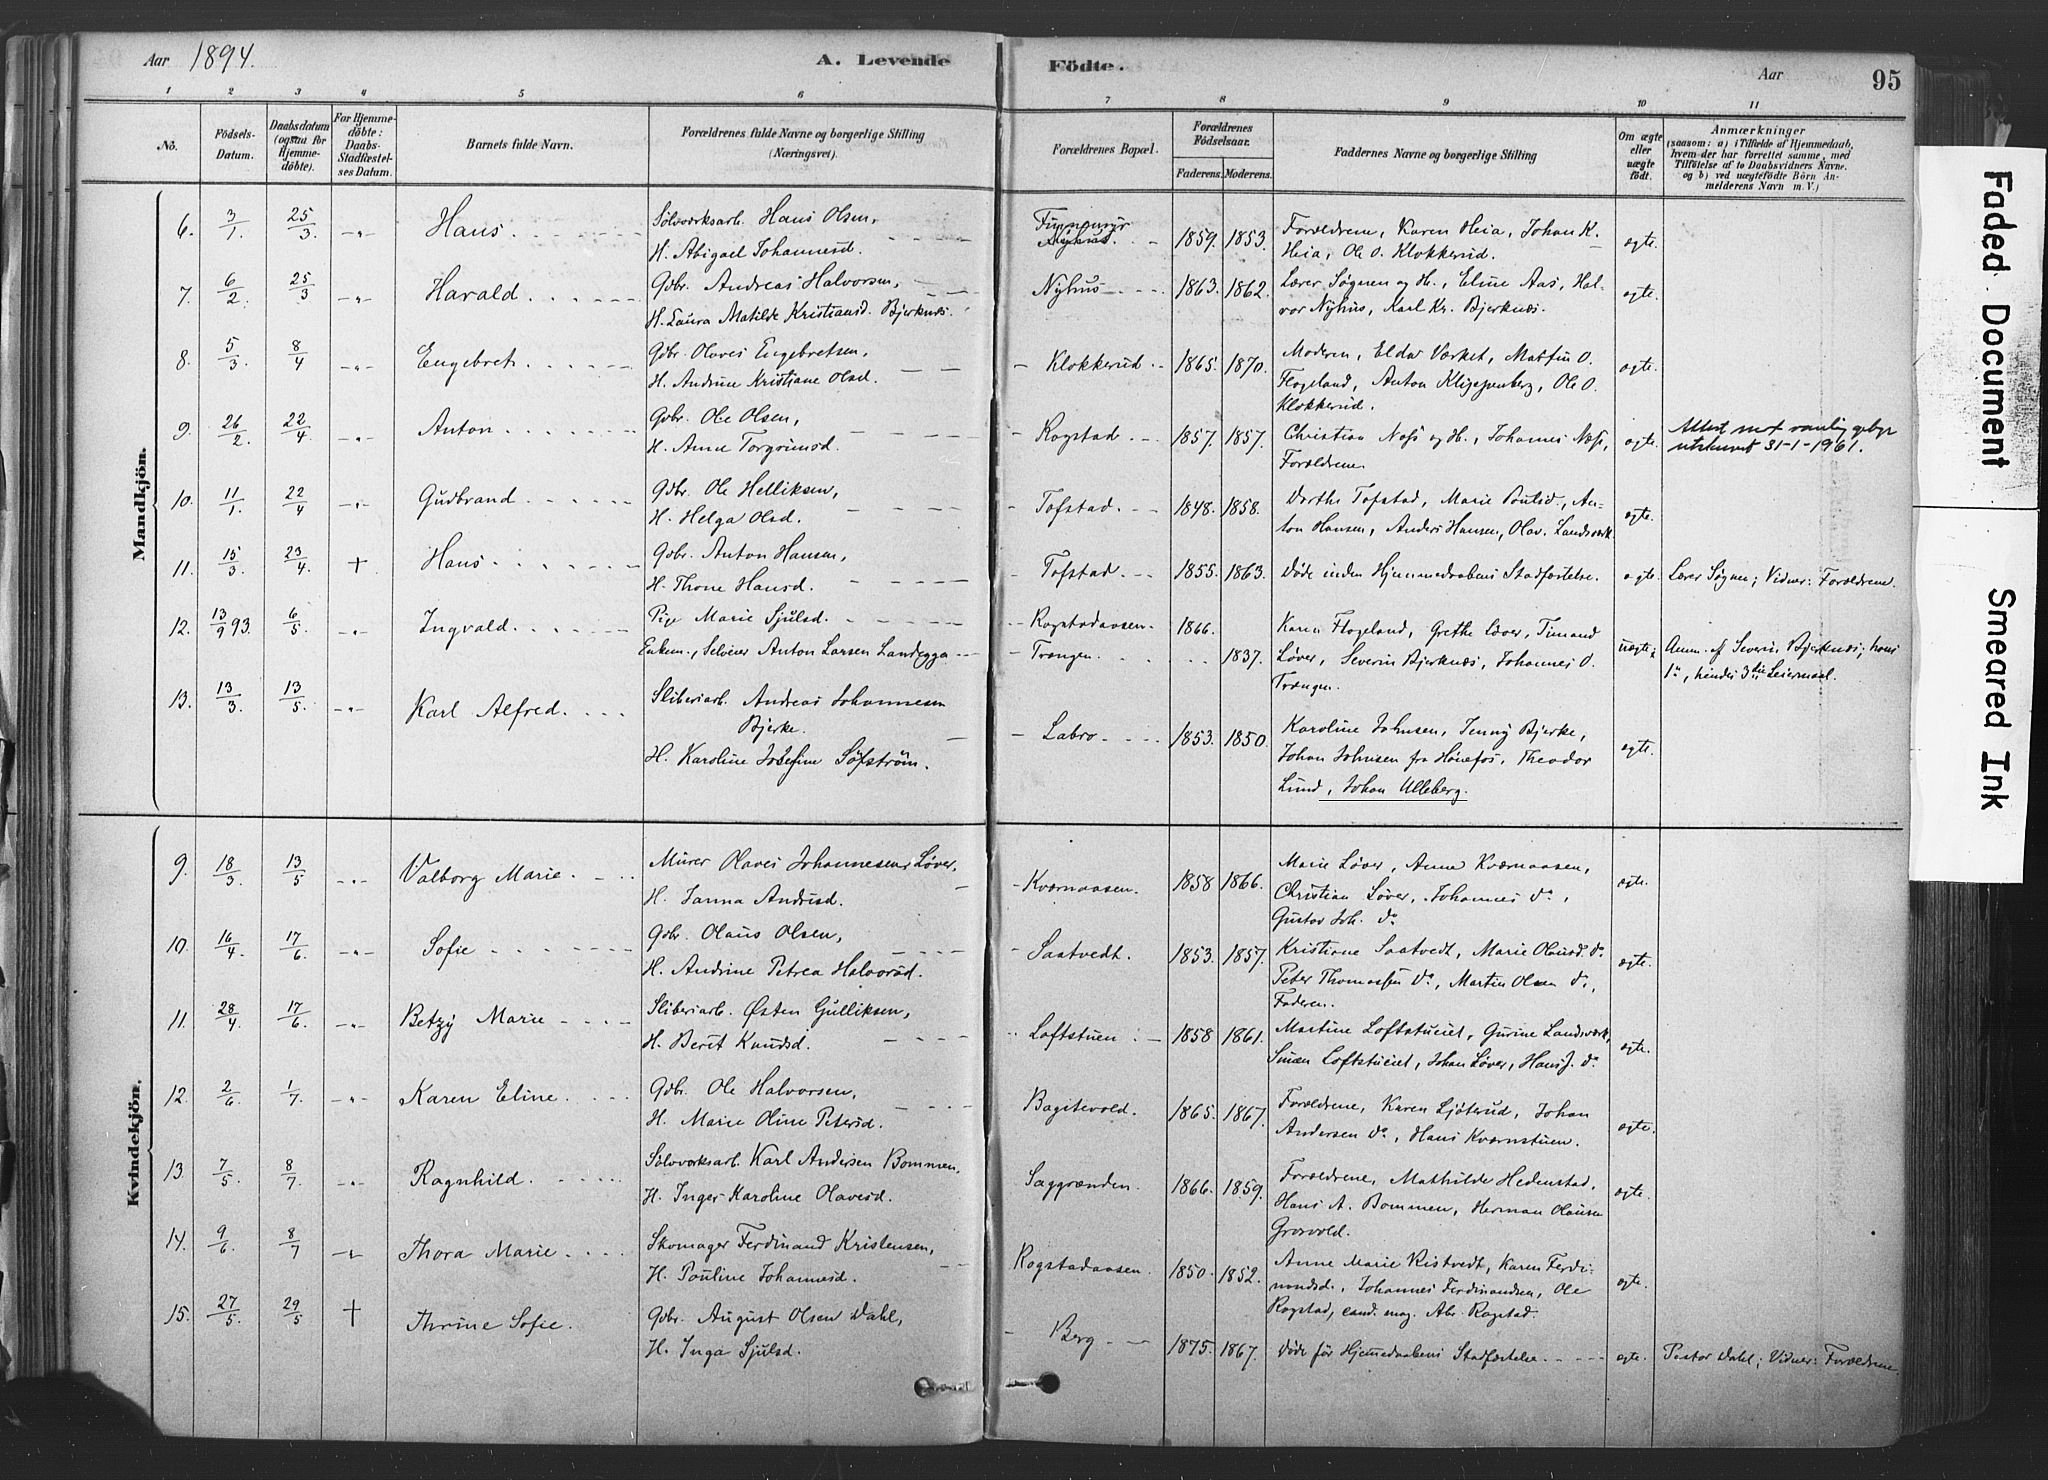 Aar 1894. A. Levende Födte. Aar 95
1 2 3 4 5 6 7 8 9 10 11
No.
Födsels-Datum.
Daabsdatum (ogsaa for Hjemmedöbte).
For Hjemmedöbte: Daabs-Stadfæstelses Datum.
Barnets fulde Navn.
Forældrenes fulde Navne og borgerlige Stilling (Næringsvei).
Forældrenes Bopæl.
Forældrenes Födselsaar.
Faderens. Moderens.
Faddernes Navne og borgerlige Stilling
Om ægte eller uægte födt.
Anmærkninger
(saasom: a) i Tilfælde af Hjemmedaab,
hvem der har forrettet samme, med
Tilföielse af to Daabsvidners Navne.
og b) ved uægtefödte Börn Anmelderens Navn m. V.)
Mandkjön.
6. 3/1 25/3 -„- Hans Sølvverksarb. Hans Olsen,
H. Abigael Johannesd. Nyhus. 1859. 1853. Forældrene, Karen Heia, Johan K.
Heia, Ole O. Klokkerud. ægte.
7. 6/2 25/3 -„- Harald Gdbr. Andreas Halvorsen,
H. Laura Matilde Kristiansd. Bjerknæs. Nyhus 1863. 1862. Lærer Søgnen og H., Eline Aas, Hal-
vor Nyhus, Karl Kr. Bjerknæs. ægte.
8. 5/3 8/4 -„- Engebret Gdbr. Olaves Engebretsen,
H. Andrine Kristiane Olsd. Klokkerud 1865. 1870. Moderen, Elda Værket, Martin O.
Flogeland, Anton Kliggenberg, Ole O.
Klokkerud. ægte.
9. 26/2 22/4 -„- Anton Gdbr. Ole Olsen,
H. Anne Torgrimsd. Rogstad 1857. 1857. Christian Næss og H., Johannes Næss,
Forældrene. ægte. Attest
utskrevet 31-1-1961.
10. 11/1 22/4 -„- Gudbrand Gdbr. Ole Helliksen,
H. Helga Olsd. Tofstad 1848. 1858. Dorthe Tofstad, Marie Poulsd., An-
ton Hansen, Anders Hansen, Olav. Landsværk ægte.
11. 15/3 23/4 + Hans Gdbr. Anton Hansen,
H. Thone Hansd. Tofstad 1855. 1863. Døde inden Hjemmedaabens Stadfæstelse. ægte. Lærer Søgnen; Vidner: Forældrene.
12. 13/9 93. 6/5 -„- Ingvald Pige Marie Sjulsd. Rogstadaasen 1866. Karen Flogeland, Grethe Løver, Timand
Enkem., Selveier Anton Larsen Landegga Trængen 1837. Løver, Severin Bjerknæs, Johannes O.
Trængen. uægte; Anm. af Severin Bjerknæs; hans
1ste, hendes 3die Leiermaal.
13. 13/3 13/5 -„- Karl Alfred Sliberiarb. Andreas Johannesen
Bjerke.
H. Karoline Josefine Söfström. Labro 1853. 1850. Karoline Johnsen, Jenny Bjerke,
Johan Johnsen fra Hønefos, Theodor
Lund, Johan Ulleberg. ægte.
Kvindekjön.
9. 18/3 13/5 -„- Valborg Marie Murer Olaves Johannesen Løver,
H. Janna Andrisd. Kværnaasen. 1858 1866. Marie Løver, Anne Kværnaasen,
Christian Løver, Johannes do,
Gustav Joh. do ægte.
10. 16/4 17/6 -„- Sofie Gdbr. Olaus Olsen,
H. Andrine Petrea Halvorsd. Saatvedt. 1853. 1857. Kristiane Saatvedt, Marie Olausd. do
Peter Thomassen do, Martin Olsen do,
Faderen. ægte.
11. 28/4 17/6 -„- Betzy Marie Sliberiarb. Østen Gulliksen,
H. Berit Knudsd. Loftstuen 1858 1861. Martine Loftstueiet, Gurine Landsværk,
Simen Loftstueiet, Johan Løver, Hans J. do ægte.
12. 2/6 1/7 -„- Karen Eline Gdbr. Ole Halvorsen,
H. Marie Oline Petersd. Bagstevold. 1865. 1867. Forældrene, Karen Ljøterud, Johan
Andersen do, Hans Kværnstuen. ægte.
13. 7/5 8/7 -„- Ragnhild Sølvverksarb. Karl Andersen Bommen.
H. Inger Karoline Olavesd. Saggrænden. 1866. 1859. Forældrene, Mathilde Hedenstad,
Hans A. Bommen, Herman Olausen
Grosvold. ægte.
14. 9/6 8/7 -„- Thora Marie Skomager Ferdinand Kristensen,
H. Pouline Johannesd. Rogstadaasen. 1850. 1852. Anne Marie Kistvedt, Karen Ferdi-
nandsd., Johannes Ferdinandsen, Ole
Rogstad, cand. mag. Abr. Rogstad. ægte.
15. 27/5 29/5 + Thrine Sofie. Gdbr. August Olsen Dahl,
H. Inga Sjulsd. Berg 1875. 1867. Døde før Hjemmedaabens Stadfæstelse ægte. Pastor Dahl; Vidner: Forældrene
Faded Document
Smeared Ink